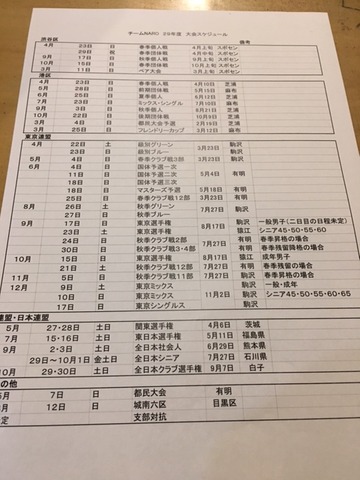 チームNARO 29年度 大会スケジュール
渋谷区 備考
4月 23日 日 春季個人戦 4月上旬 スポセン
23日 日 春季団体戦 4月中旬 スポセン
9月 17日 日 秋季個人戦 9月上旬 スポセン
10月 15日 日 秋季団体戦 10月上旬 スポセン
3月 11日 日 ペア大会 3月上旬 スポセン
港区
4月 23日 日 春季個人戦 4月10日 芝浦
5月 28日 日 前期団体戦 4月21日 麻布
6月 25日 日 夏季個人戦 6月 芝浦
7月 23日 日 ミックス・シングル 7月 麻布
9月 3日 日 秋季個人戦 芝浦
10月 22日 日 後期団体戦 芝浦
3月 4日 日 都川大会予選 芝浦
3月 25日 日 フレンドリーカップ 3月12日 麻布
東京連盟
4月 22日 土 級別グリーン 3月23日 駒沢
23日 日 級別ブルー 駒沢
5月 4日 日 春季クラブ戦3部 3月23日 駒沢
6月 4日 日 国体予選一次
11日 日 国体予選二次 5月4日 有明
18日 日 国体予選三次 有明
25日 日 マスターズ予選 有明
8月 26日 土 秋季グリーン 7月27日 駒沢
27日 日 秋季ブルー 駒沢
9月 17日 日 東京選手権 8月17日 駒沢 一般男子(二日目の日程未定)
23日 土 東京選手権 猿江 シニア45・50・55・60
24日 日 秋季クラブ戦2部 7月27日 有明 春季昇格の場合
30日 土 秋季クラブ戦2部 有明 春季残留降格の場合
10月 15日 日 東京選手権 8月17日 猿江 成年男子
21日 土 秋季クラブ戦12部 7月27日 有明 春季残留の場合
11月 5日 日 秋季クラブ戦11部 7月27日 駒沢 春季昇格の場合
12月 9日 土 東京ミックス 駒沢 一般・成年
10日 日 東京ミックス 11月2日 駒沢 シニア45・50・55・60・65
17日 日 東京シングルス 駒沢
連盟・日本連盟
5月 27・28日 土日 関東選手権 4月6日 茨城
7月 15・16日 土日 東日本選手権 5月11日 福島県
9月 2・3日 土日 全日本社会人 6月29日 熊本県
29日~10月1日 金土日 全日本シニア 7月27日 石川県
10月 29・30日 土日 全日本クラブ選手権 9月7日 白子
の他
5月 7日 日 都民大会 有明
月 12日 日 城南六区 目黒区
定 支部対抗